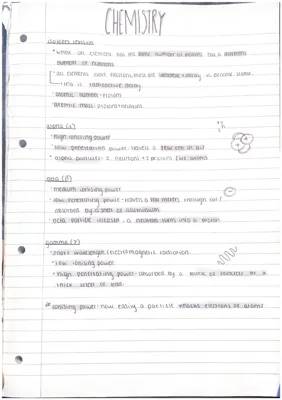 CHEMISTRY
· when an element has the same number of protons but a different
number of neutrons
· this is radioactive decay
· atomic number - protons
· atomic mass - protons + neutrons
alpha (α)
· high ionising power
· low penetration power - travels a few cm in air
· alpha particle - 2 neutrons + 2 protons
beta (β)
· medium ionising power
· low penetrating power - travels a few metres through air /
absorbed by a sheet of aluminium
· beta particle - a neutron turns into a proton
gamma (γ)
· short wavelength electromagnetic radiation
· low ionising power
· high penetrating power - absorbed by a block of concrete or a
thick sheet of lead
* ionising power - how easily a particle knocks electrons off atoms